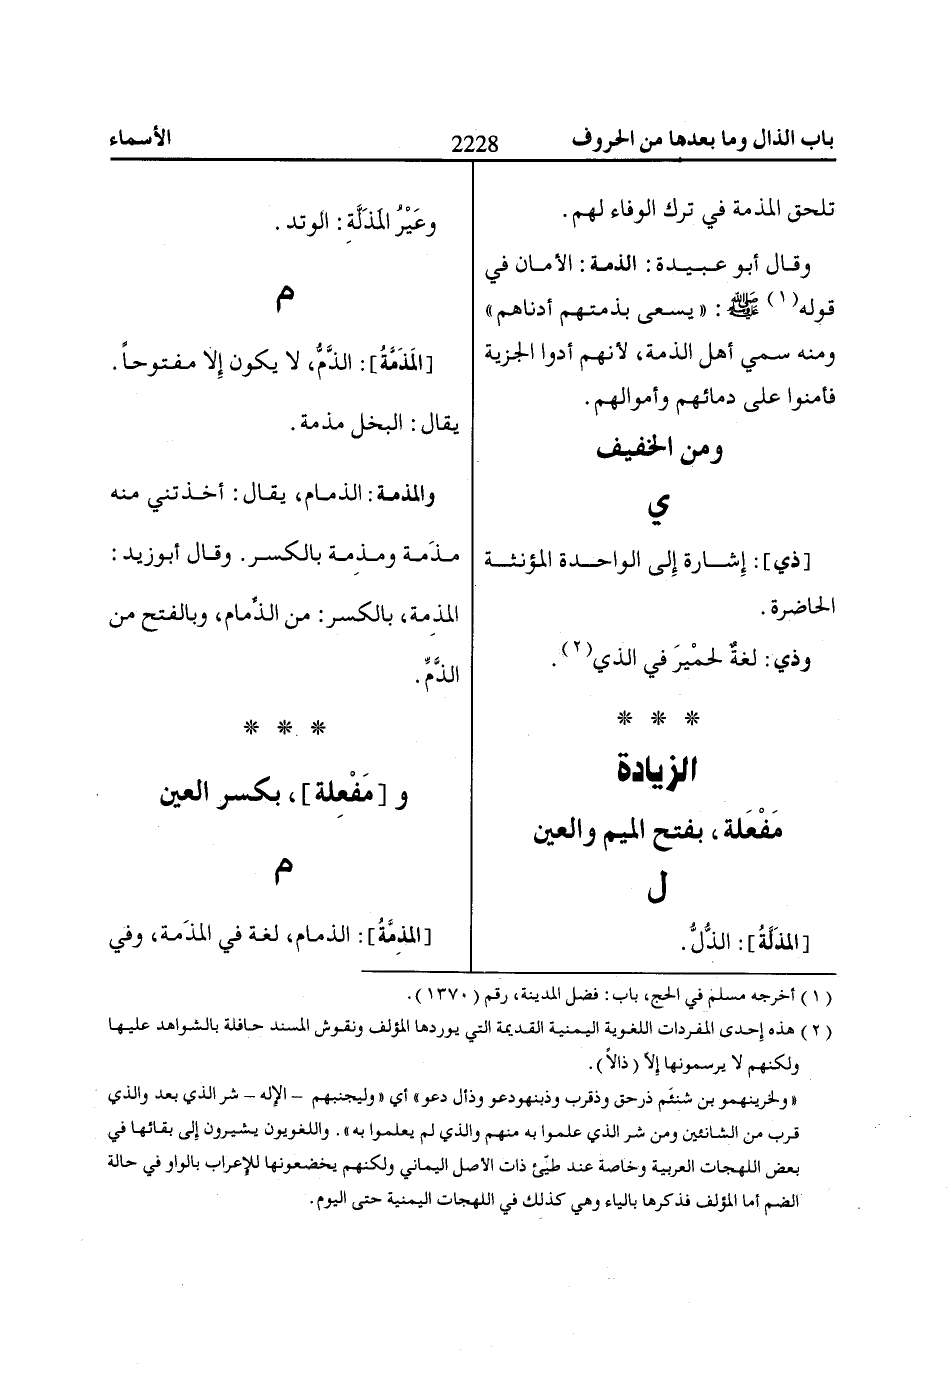 باب الذال وما بعدها من الحروف 2228 الأسماء
تلحق المذمة في ترك الوفاء لهم.
وقال أبو عبيدة: الذمة: الأمان في
قوله(١) ﷺ: «يسعى بذمتهم أدناهم»
ومنه سمي أهل الذمة، لأنهم أدوا الجزية
فأمنوا على دمائهم وأموالهم.
ومن الخفيف
ي
[ذي]: إشارة إلى الواحدة المؤنثة
الحاضرة.
وذي: لغةٌ لحمْيرَ في الذي(٢).
* * *
الزيادة
مَفْعَلة، بفتح الميم والعين
ل
[المَذَلَّةُ]: الذُّلُّ.
وعَيْرُ المَذَلَّةِ: الوتد.
م
[المَذَمَّةُ]: الذَّمُّ، لا يكون إلا مفتوحاً.
يقال: البخل مذمة.
والمذمة: الذمام، يقال: أخذتني منه
مذَمة ومذِمة بالكسر. وقال أبوزيد:
المذِمة، بالكسر: من الذِّمام، وبالفتح من
الذَّمِّ.
* * *
و [مَفْعِلة]، بكسر العين
م
[المذِمَّةُ]: الذمام، لغة في المذَمة، وفي
(١) أخرجه مسلم في الحج، باب: فضل المدينة، رقم (١٣٧٠).
(٢) هذه إحدى المفردات اللغوية اليمنية القديمة التي يوردها المؤلف ونقوش المسند حافلة بالشواهد عليها
ولكنهم لا يرسمونها إلاّ (ذالاً).
«ولخرينهمو بن شنئم ذرحق وذقرب وذبنهودعو وذأل دعو» أي «وليجنبهم – الإله – شر الذي بعد والذي
قرب من الشانئين ومن شر الذي علموا به منهم والذي لم يعلموا به». واللغويون يشيرون إلى بقائها في
بعض اللهجات العربية وخاصة عند طيّئ ذات الأصل اليماني ولكنهم يخضعونها للإعراب بالواو في حالة
الضم أما المؤلف فذكرها بالياء وهي كذلك في اللهجات اليمنية حتى اليوم.